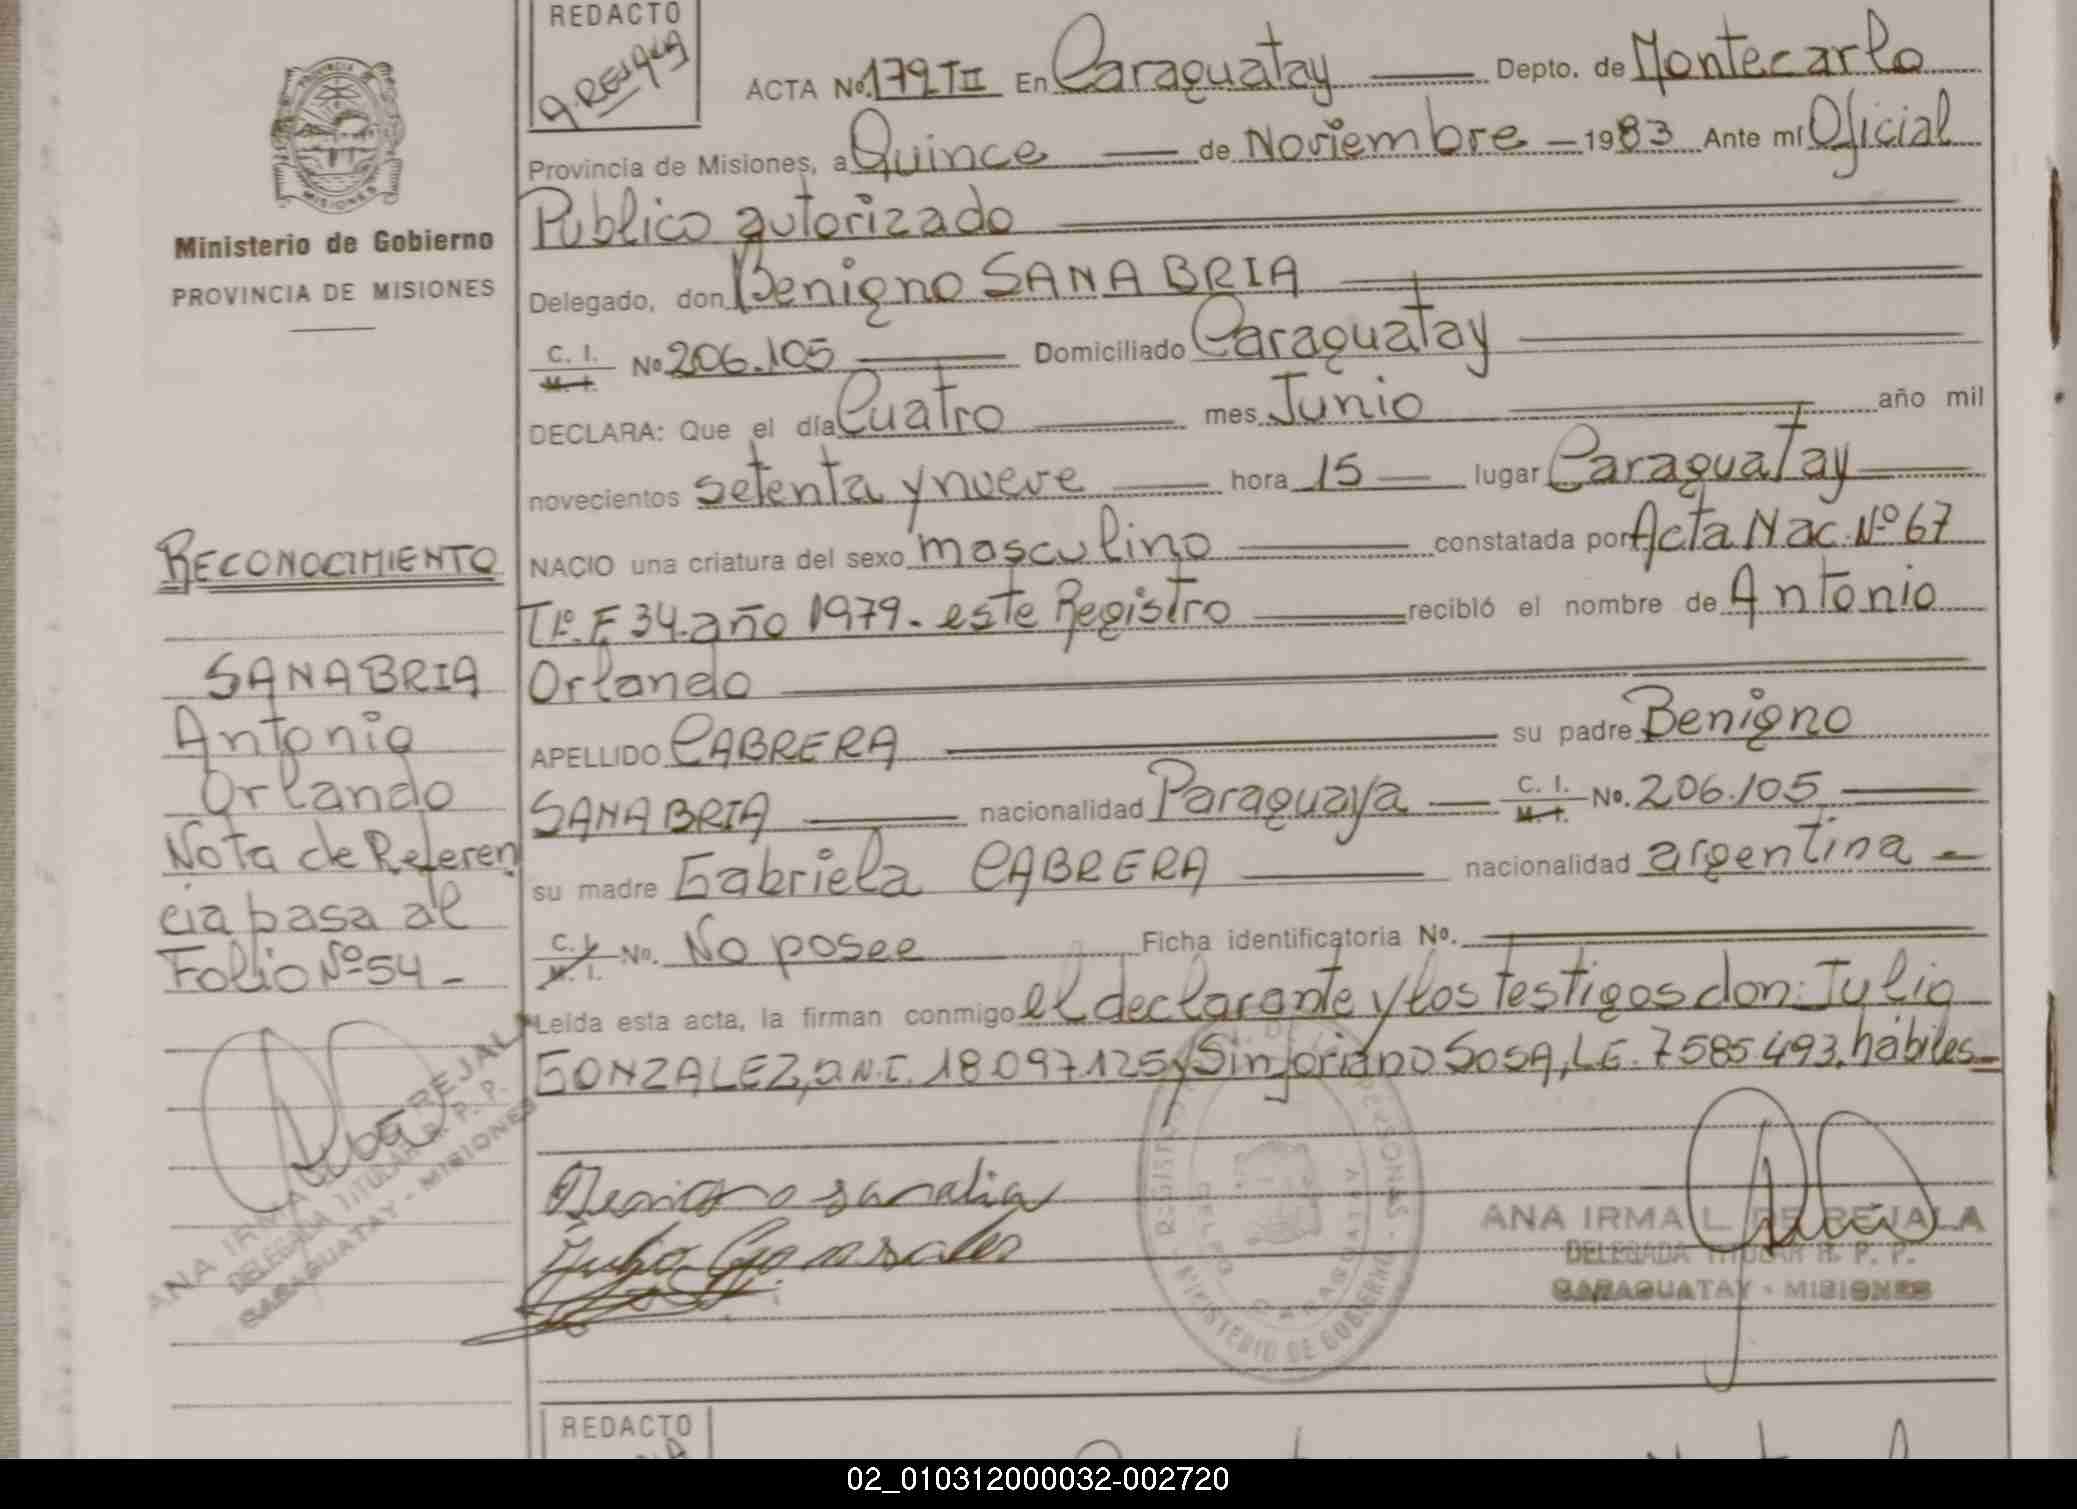 REDACTO
ACTA No. 179 TII En Caraguatay Depto. de Montecarlo
Provincia de Misiones, a Quince de Noviembre 1983 Ante mí Oficial
Publico autorizado
PROVINCIA DE
MISIONES
Ministerio de Gobierno
PROVINCIA DE MISIONES
Delegado, don Benigno SANABRIA
C. I.
M. I. No 206.105 Domiciliado Caraguatay
DECLARA: Que el día Cuatro mes Junio año mil
novecientos setenta y nueve hora 15 lugar Caraguatay
NACIO una criatura del sexo masculino constatada por Acta Nac. Nº 67
Tº. F 34. año 1979. este Registro recibló el nombre de Antonio
Orlando
APELLIDO CABRERA su padre Benigno
SANABRIA nacionalidad Paraguaya C. I. M. I. No. 206.105
su madre Gabriela CABRERA nacionalidad argentina
C. I. M. I. No. No posee Ficha identificatoria No.
Leída esta acta, la firman conmigo el declarante y los testigos don: Julio
GONZALEZ, D.N.I. 18.097.125 y Sinforiano SOSA, L.E. 7585493. hábiles
RECONOCIMIENTO
SANABRIA
Antonio
Orlando
Nota de Referen
cia pasa al
Folio Nº 54
ANA IRMA L. DE REJALA
DELEGADA TITULAR R. P. P.
CARAGUATAY - MISIONES
Benigno sanabria
Julio Gonsales
MINISTERIO DE GOBIERNO
CARAGUATAY
ANA IRMA L. DE REJALA
DELEGADA TITULAR R. P. P.
CARAGUATAY - MISIONES
REDACTO
02_010312000032-002720